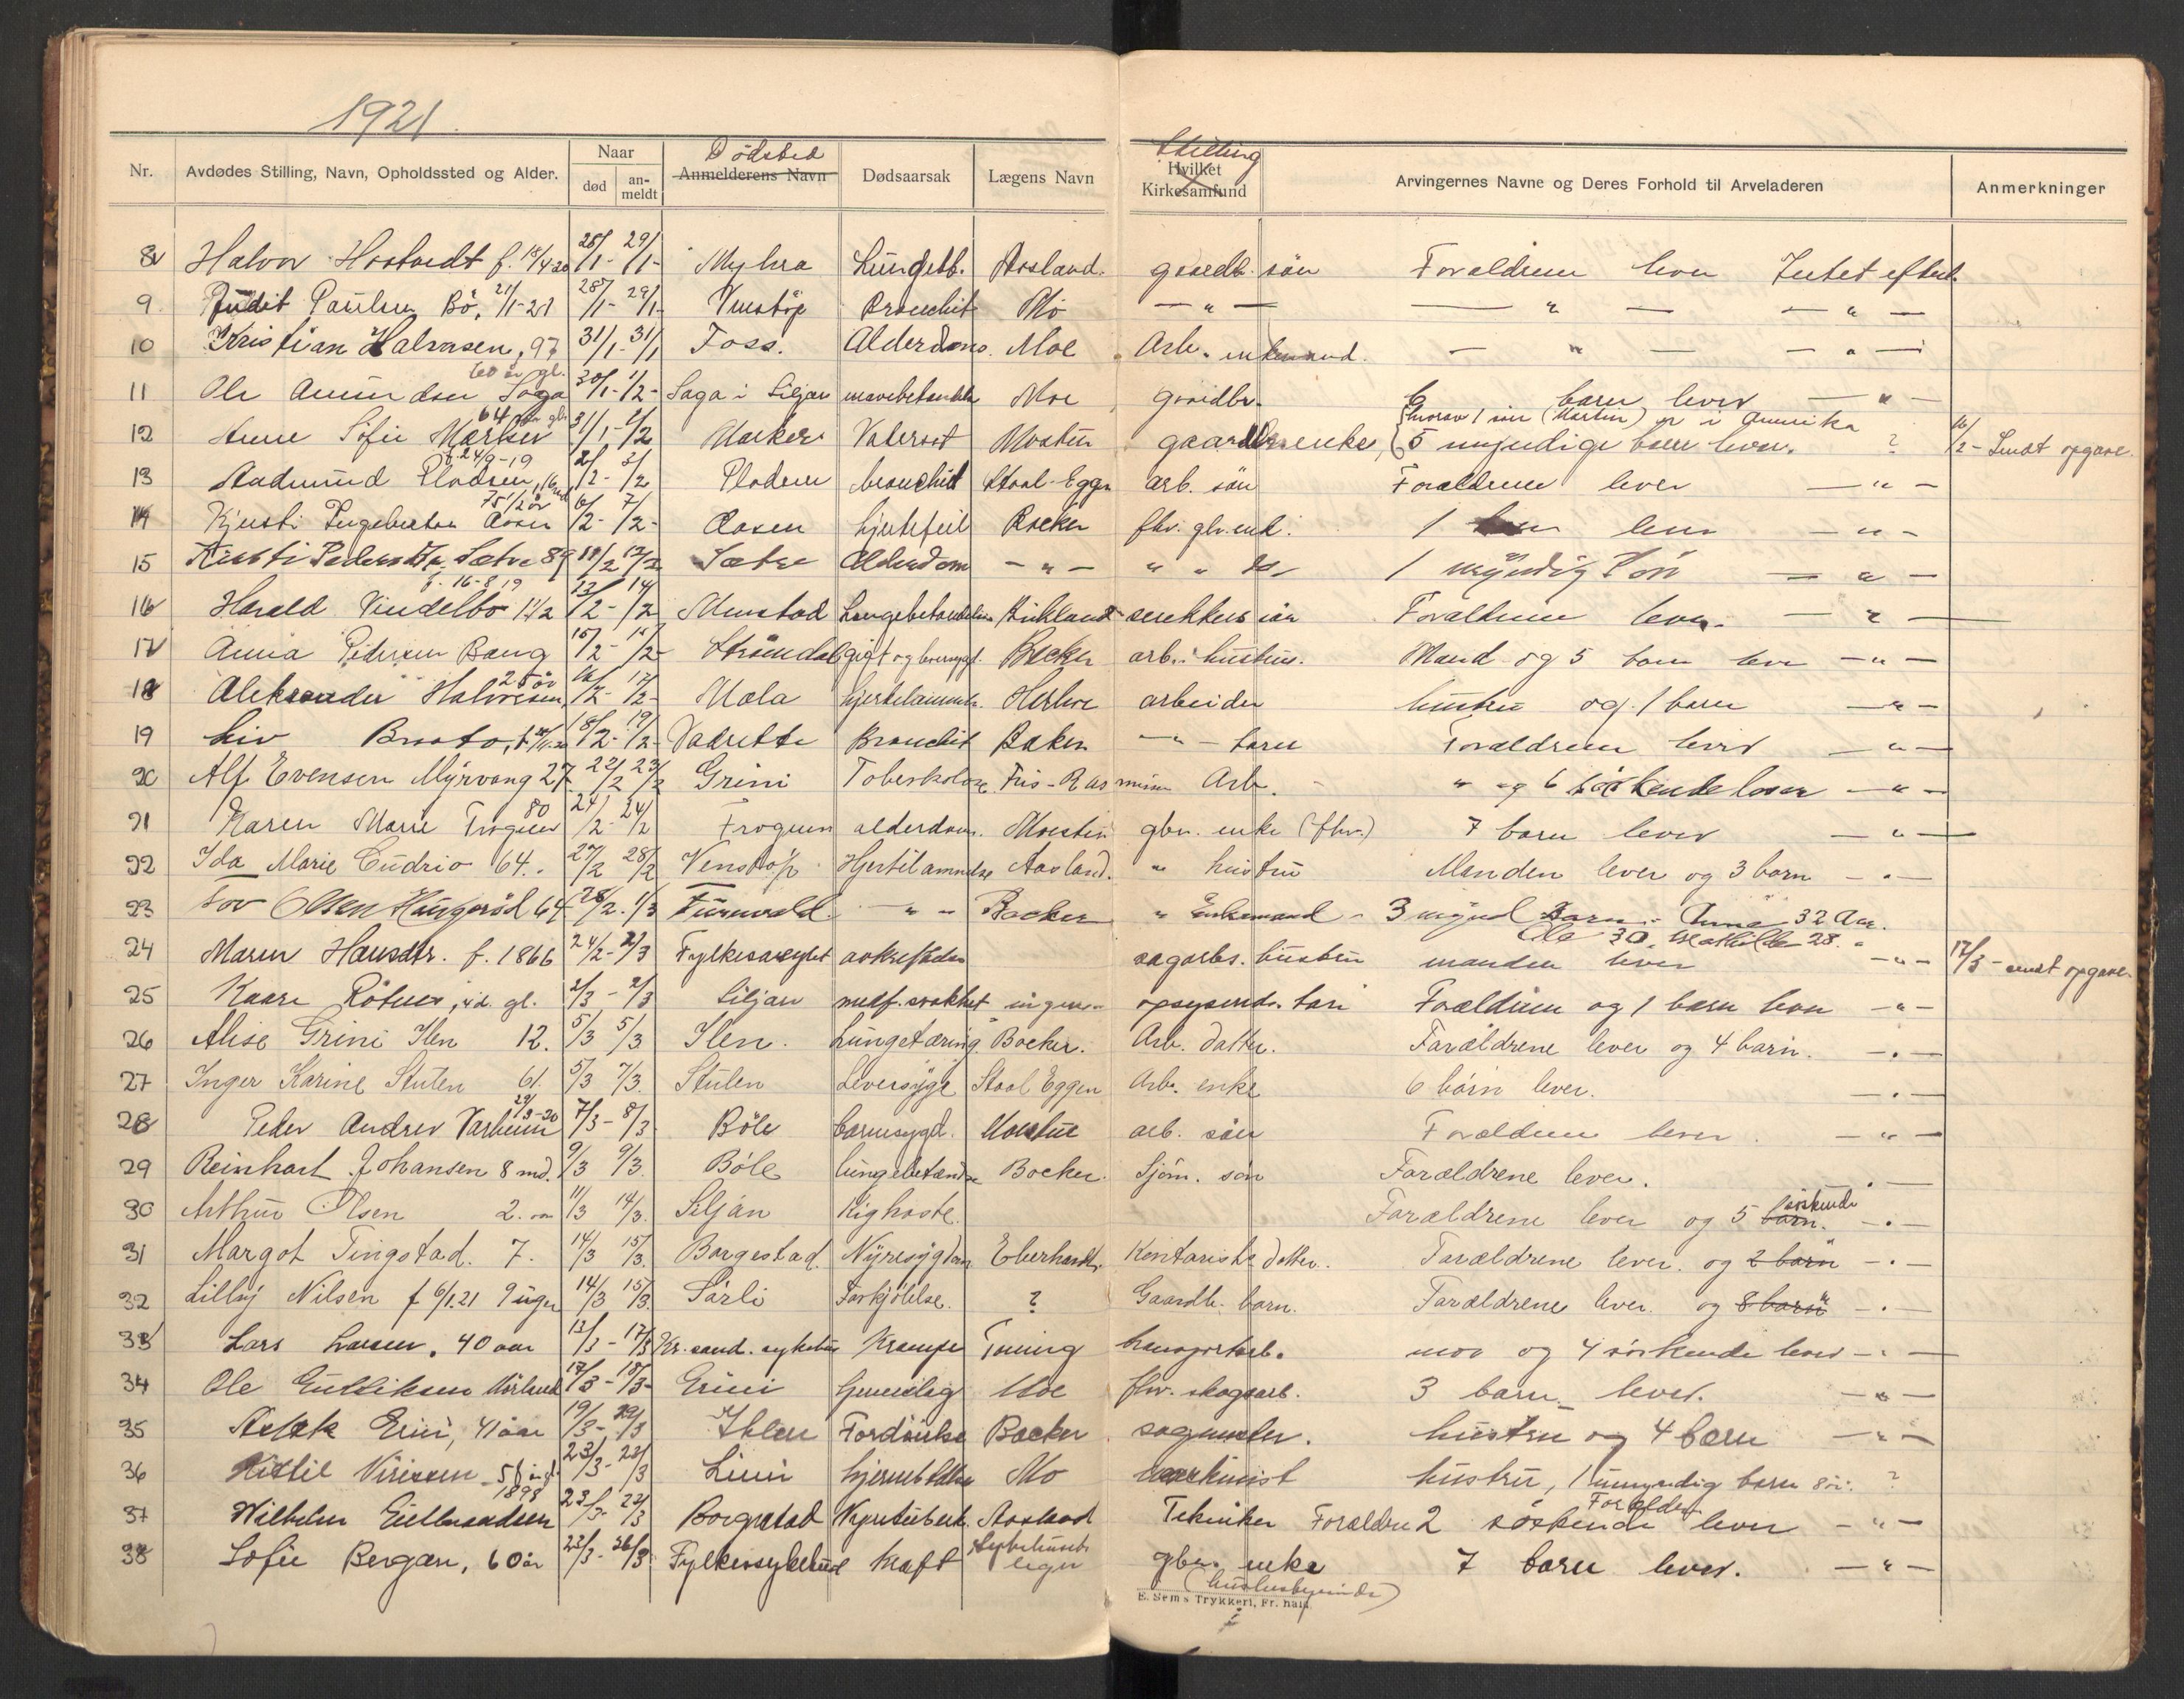 1921.
Nr. Avdødes Stilling, Navn, Opholdssted og Alder. Naar død an-meldt Dödsted Anmelderens Navn Dødsaarsak Lægens Navn Stilling Hvilket Kirkesamfund Arvingernes Navne og Deres Forhold til Arveladeren Anmerkninger
8 Halvor Hostvedt f. 18/4 20 28/1- 29/1- Myhra Lungebb. Aasland. gaardb. sön Foraldrene lever Intet efterl.
9 Judit Paulsen Bö, 21/1-21 28/1- 29/1- Venstöp Bronchit Mo — " — — " — — " —
10 Kristian Halvorsen, 97 31/1- 31/1 Foss. Alderdoms. Moe Arb. enkemand. — " — — " —
60 år gl.
11 Ole Amundsen Saga 30/1- 1/2- Saga i Siljan mavebetændelse Moe gaardbr. 6 barn lever — " —
64 år gl. hvorav 1 sön (Martin) er i Amerika
12 Anne Sofie 31/1- 2/2 Vatersot Moestue gaardbr. enke, 5 myndige barn lever. ? 16/2- Sendt opgave.
f. 24/9-19
13 Aadmund Plodsen, 2/2- 3/2 Plodsen bronchit Staal-Eggen arb. sön Foraldrene lever — " —
75 1/2 år
14 Kjersti Ingebretsen Aasen 6/2- 7/2- Aasen hjertefeil Bacher fhv. gbr. enk. 1 barn lever — " —
15 Kirsti Pedersdtr. Sætre 89 11/2 12/2 Sætre Alderdom — " — " " 1 myndig Sön — " —
f. 16-8 19
16 Harald Vindelbo 1 1/2 13/2- 14/2 Lungebetændelse Kirkland snekkers sön Foraldrene lever. — " —
17 Anna Pedersen Bang 15/2- 15/2- Strömdal gigt og Bacher arb. hustru. Mand og 5 barn lever — " —
25 år
18 Aleksander Halvorsen, 16/2- 17/2- Mæla hjertelammelse. arbeider hustru og 1 barn — " —
19 Liv 18/2- 19/2- Vadrette Bronchit Bacher — " — barn Foraldrene lever — " —
20 Alf Evensen Myrvang 27 22/2 23/2 Grini Toberkolose Fris-Rasmussen Arb. " og 6 söskende lever — " —
21 Karen Marie Trogsen 80 24/2- 24/2 Frogner alderdom. Moestue gbr. enke (fhv.) 7 barn lever — " —
22 Ida Marie Cudrio 64. 27/2 28/2 Venstöp Hjertelammelse Aasland. " hustru Manden lever og 3 barn — " —
23 Tov Olsen Haugeröd 64 28/2. 1/3 Furuvald. — " — Bacher " Enkemand - 3 mynd Barn - Anna 32 Aar.
Ole 30. Mathilde 28. "
24 Maren Hansdtr. f. 1866 24/2- 2/3 Fylkesasylet avkræftelse sagarb. hustru manden lever — " — 17/3 - sendt opgave.
25 Kaare Rötnes, 4 d. gl. 2/3 - 2/3 Siljan medf. svakhet ingen - opsynsmds. barn Foraldrene og 1 barn lever — " —
26 Alise Grini Ilen 12. 5/3 5/3 Ilen. Lungetæring. Bacher. Arb. datter. Foraldrene lever og 4 barn. — " —
27 Inger Karine Stulen 61. 5/3 7/3. Stulen Leversyge Staal Eggen Arb. enke 6 barn lever. — " —
28 Peder Andrev 29/9-20 7/3 - 8/3 Böle barnesygd. Moestue arb. sön Foraldrene lever — " —
29 Reinhart Johansen 8 md. 9/3 9/3. Böle lungebetændelse Bacher. Sjöm. sön Foraldrene lever. — " —
30 Arthur Olsen 2. aar 11/3 14/3. Siljan Kighoste. Foraldrene lever og 5 barn. söskende — " —
31 Margot Tingstad. 7. 14/3 15/3. Borgestad. Nyresygdom Eberhardt. Kontorists datter. Foraldrene lever. og 2 barn " — " —
32 Lilly Nilsen f 6/1.21 9 uger 14/3 15/3. Sörli Forkjölelse. ? Gaardb. barn. Foraldrene lever. og 8 barn " — " —
33 Lars Larsen. 40 aar 13/3 - 17/3 Kr.sand. sykehus Krampe Tuning transportarb. mor og 4 söskende lever — " —
34 Ole Gulliksen 17/3 - 18/3- Grini hjerneslag Moe fhv. skogsarb. 3 barn lever. — " —
35 Aslak Grini, 41 aar 19/3-, 22/3 Ihlen Fordöielse Bacher sagmester. hustru og 4 barn — " —
36 Kittil Nirissen 5 23/3- 23/3 Limi Mo maskinist hustru, 1 umyndig barn 8 år. ?
1898 Foraldre
37 Wilhelm Guttormsen 23/3- 23/3 Borgestad Nyretuberk. Aasland Tekniker Foraldre 2 söskende lever — " —
38 Sofie Bergan, 60 år 23/3- 26/3 Fylkessykehus kræft sykehusets læge gbr. enke 7 barn lever. — " —
(husbestyrerinde)
E. Sems Trykkeri, Fr.hald.